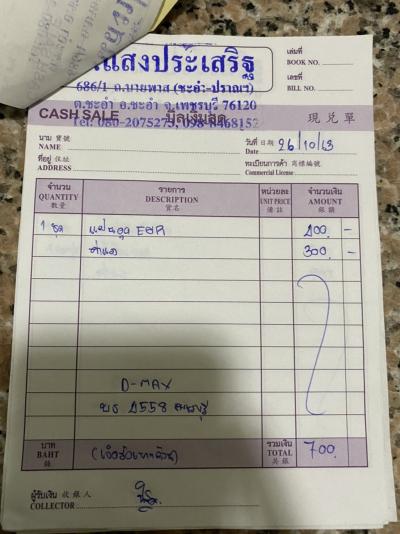 แสงประเสริฐ
686/1 ถ.นายพาส (ชะอำ-ปราณฯ)
ต.ชะอำ อ.ชะอำ จ.เพชรบุรี 76120
Tel: 080-2075273, 098-8468152
เล่มที่
BOOK NO.
เลขที่
BILL NO.
CASH SALE บิลเงินสด 現兌單
นาม 寶號
NAME
วันที่ 日期 26/10/63
Date
ที่อยู่ 住址
ADDRESS
ทะเบียนการค้า 商標編號
Commercial License
จำนวน QUANTITY 數量
รายการ DESCRIPTION 貨名
หน่วยละ UNIT PRICE 備註
จำนวนเงิน AMOUNT 銀額
1 ชุด แผ่นอุด EGR 400 -
ค่าแรง 300 -
D-MAX
2558
บาท BAHT 銖
(เจ็ดร้อยบาทถ้วน)
รวมเงิน TOTAL 共銀 700
ผู้รับเงิน 收銀人
COLLECTOR